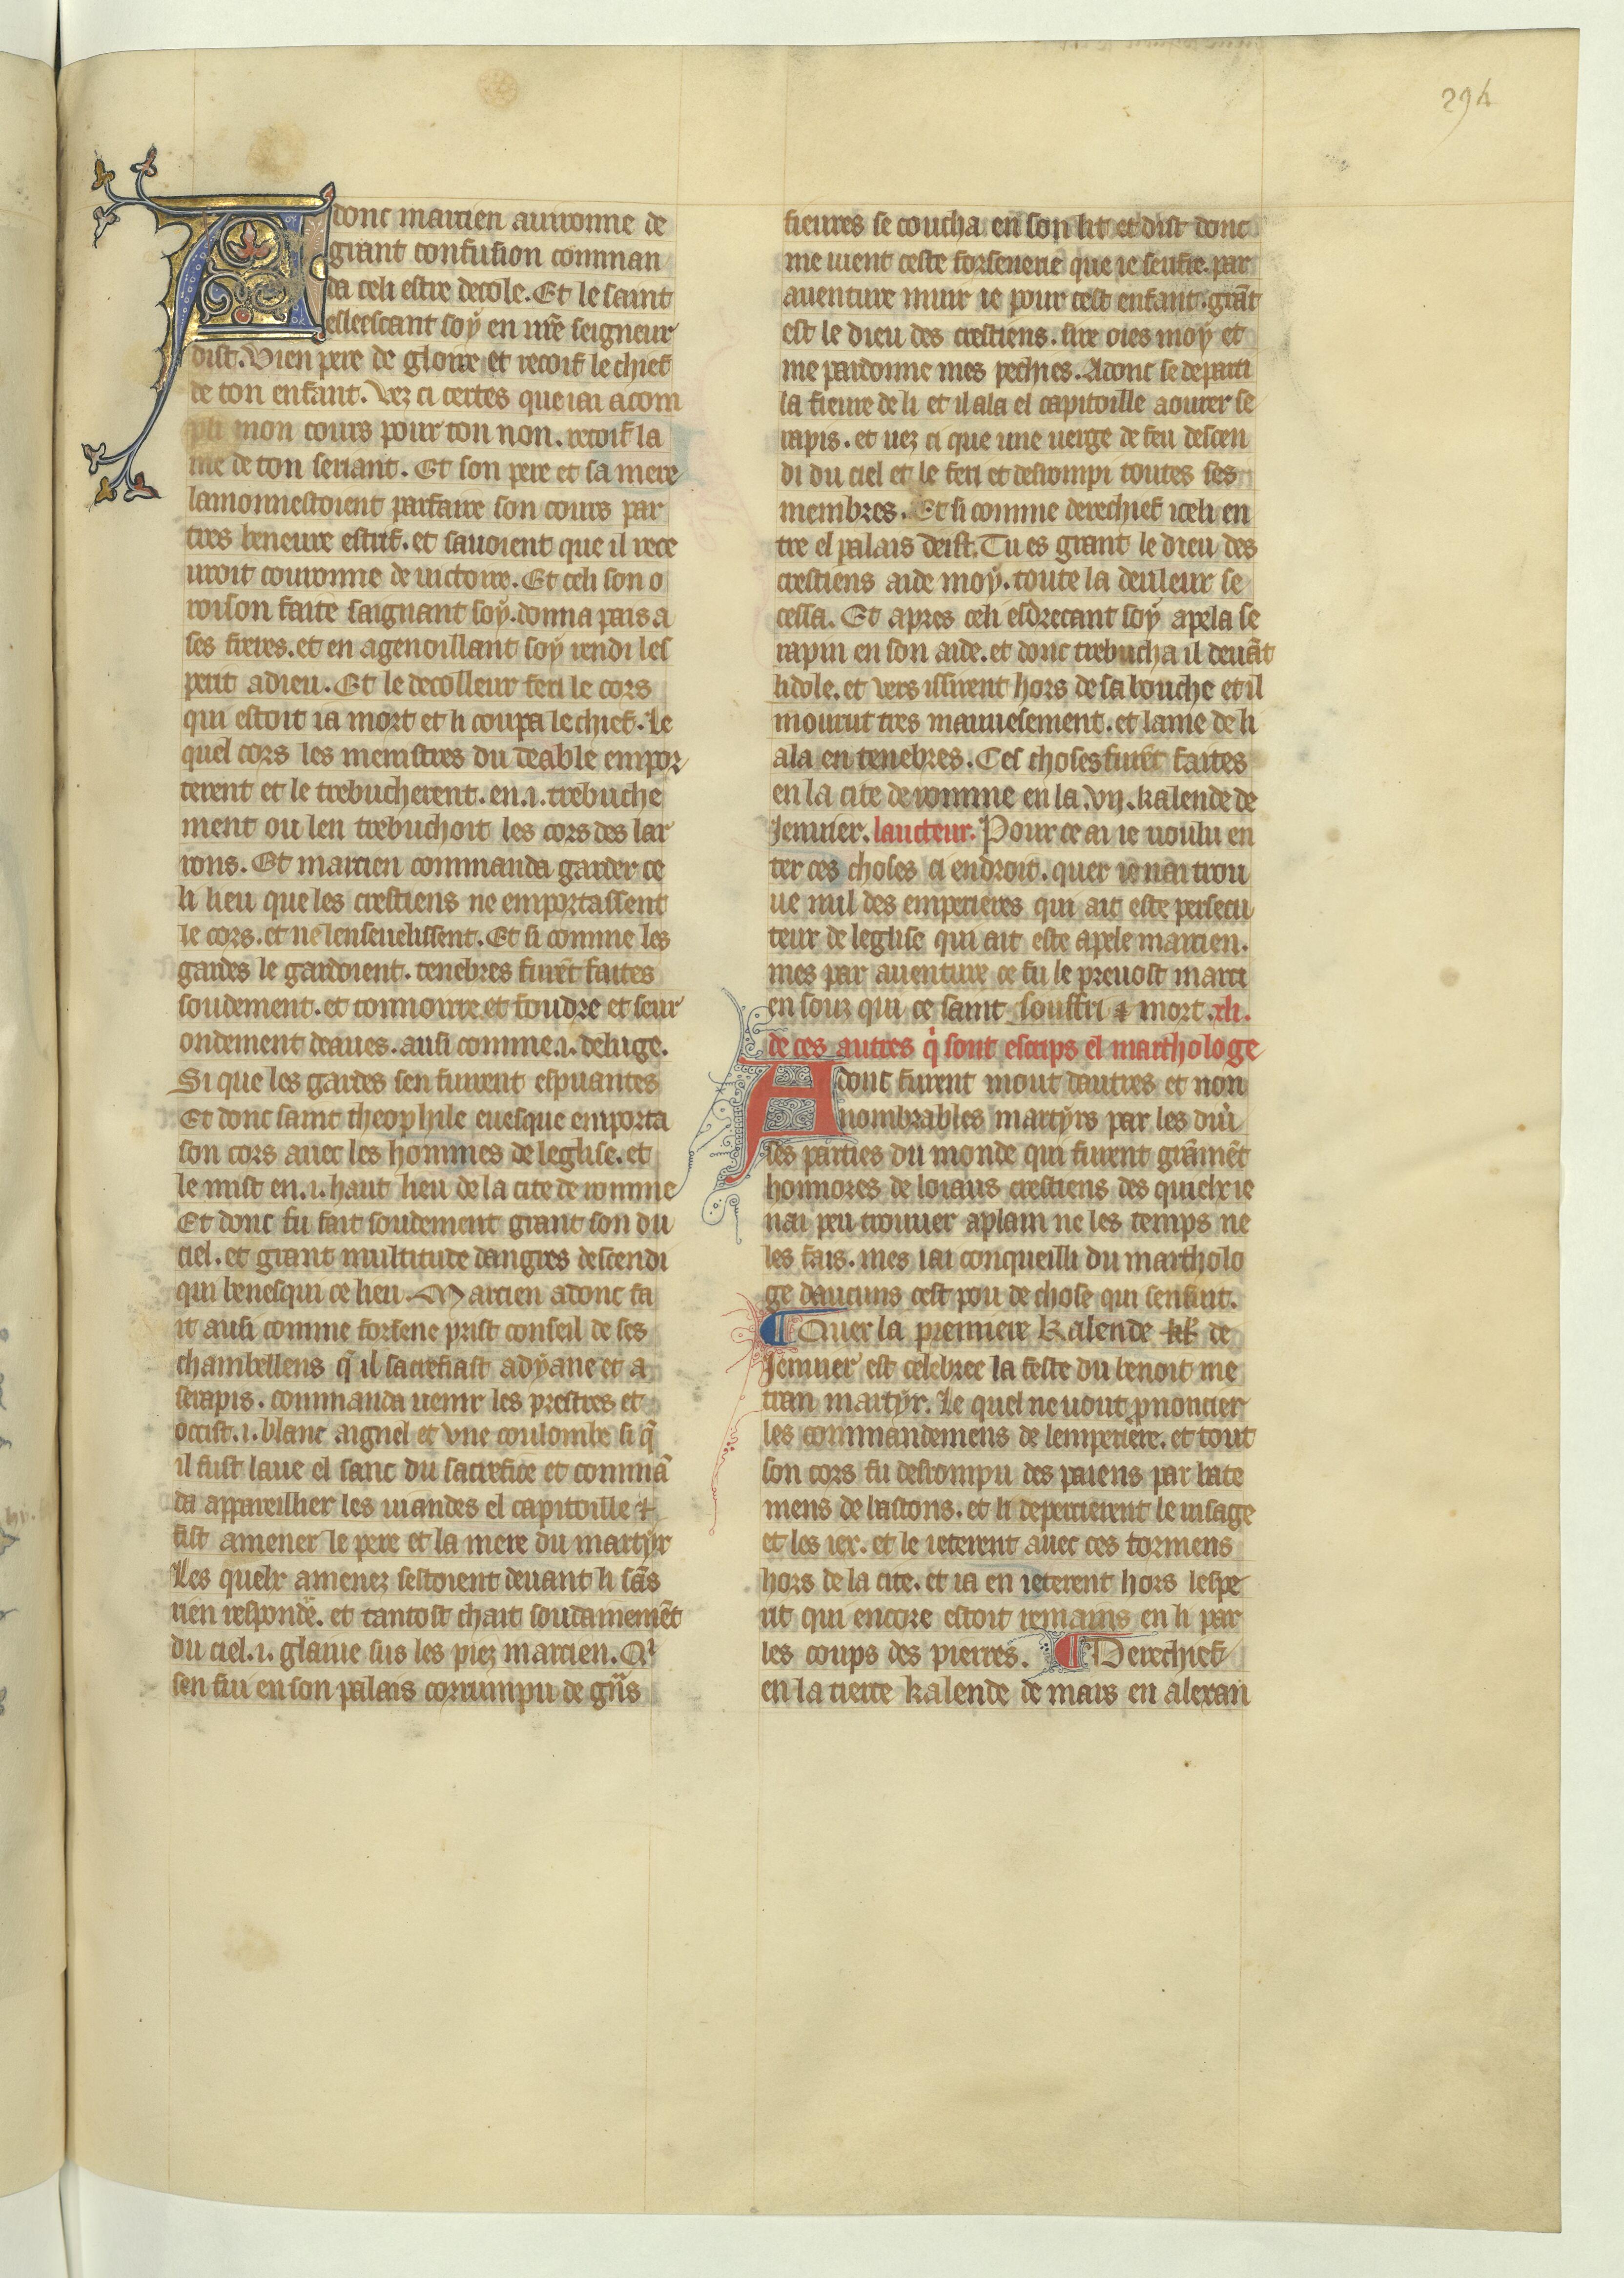 294
Adonc marcien auironne de
grant confusion comman
da celi estre decole. Et le saint
esleescant soy en nr̃e seigneur
dist. Vien pere de gloire et recoif le chief
de ton enfant. Vez ci certes que iai acom
pli mon cours pour ton non. recoif la
me de ton seriant. Et son pere et sa mere
lamonnestoient parfaire son cours par
tres beneure estrif. et sauoient que il rece
uroit couronne de uictoire. Et celi son o
roison faite saignant soy. donna pais a
ses freres. et en agenoillant soy rendi les
perit a dieu. Et le decolleur feri le cors
qui estoit ia mort et li coupa le chief. Le
quel cors les menistres du deable empor
terent et le trebucherent. en .i. trebuche
ment ou len trebuchoit les cors des lar
rons. Et marcien commanda garder ce
li lieu que les crestiens ne emportassent
le cors. et ne lenseuelissent. Et si comme les
gardes le gardoient. tenebres furẽt faites
soudement. et tonnoirre et foudre et seur
ondement deaues. ausi comme .i. deluge.
Si que les gardes sen fuirent espuantes
Et donc saint theophile euesque emporta
son cors auec les hommes de leglise. et
le mist en .i. haut lieu de la cite de romme
Et donc fu fait soudement grant son du
ciel. et grant multitude dangres descendi
qui benesqui ce lieu. Marcien adonc fa
it ausi comme forsene prist conseil de ses
chambellens q̃ il sacrefiast a dyane et a
serapis. commanda uenir les prestres et
occist .i. blanc aignel et vne coulombe si q̃
il fust laue el sanc du sacrefice et commã
da appareillier les uiandes el capitoille ⁊
fist amener le pere et la mere du martyr
Les quelx amenez sestoient deuant li sãs
rien respondre. et tantost chait soudainemẽt
du ciel .i. glaiue sus les piez marcien. Qi
sen fui en son palais corrumpu de gñs
fieures se coucha en son lit et dist donc
me uient ceste forsenerie que ie seufre. par
auenture muir ie pour cest enfant. grãt
est le dieu des crestiens. sire oies moy et
me pardonne mes pechies. Adonc se departi
la fieure de li et il ala el capitoille aourer se
rapis. et uez ci que une uerge de feu descen
di du ciel et le feri et desrompi toutes ses
membres. Et si comme derechief iceli en
tre el palais deist. Tu es grant le dieu des
crestiens aide moy. toute la deuleur se
cessa. Et apres celi esdrecant soy apela se
rapin en son aide. et donc trebucha il deuãt
lidole. et vers issirent hors de sa bouche et il
mourut tres mauuesement. et lame de li
ala en tenebres. Ces choses furẽt faites
en la cite de romme en la .vij. kalende de
Jenuier. laucteur. Pour ce ai ie uoulu en
ter ces choses ci endroit. quer ie nai trou
ue nul des emperieres qui ait este persecu
teur de leglise qui ait este apele marcien.
mes par auenture ce fu le preuost marci
en souz qui ce saint souffri ⁊ mort. xli.
de ces autres q̇ sont escrips el marthologe
Adonc furent mout dautres et non
nombrables martyrs par les diũ
ses parties du monde qui furent grãmẽt
honnores de loiaus crestiens des quielx ie
nai peu trouuer a plain ne les temps ne
les fais. mes iai conqueilli du martholo
ge daucuns cest pou de chose qui sensuit.
¶ Quer la premiere Kalende kł de
Jenuier est celebree la feste du benoit me
tran martyr. Le quel ne uout ꝓnoncier
les commandemens de lemperiere. et tout
son cors fu desrompu des paiens par bate
mens de bastons. et li depercierent le uisage
et les iex. et le ieterent auec ces tormens
hors de la cite. et ia en ieterent hors lespe
rit qui encore estoit remains en li par
les coups des pierres. ¶ Derechief
en la tierce kalende de mars en alexan